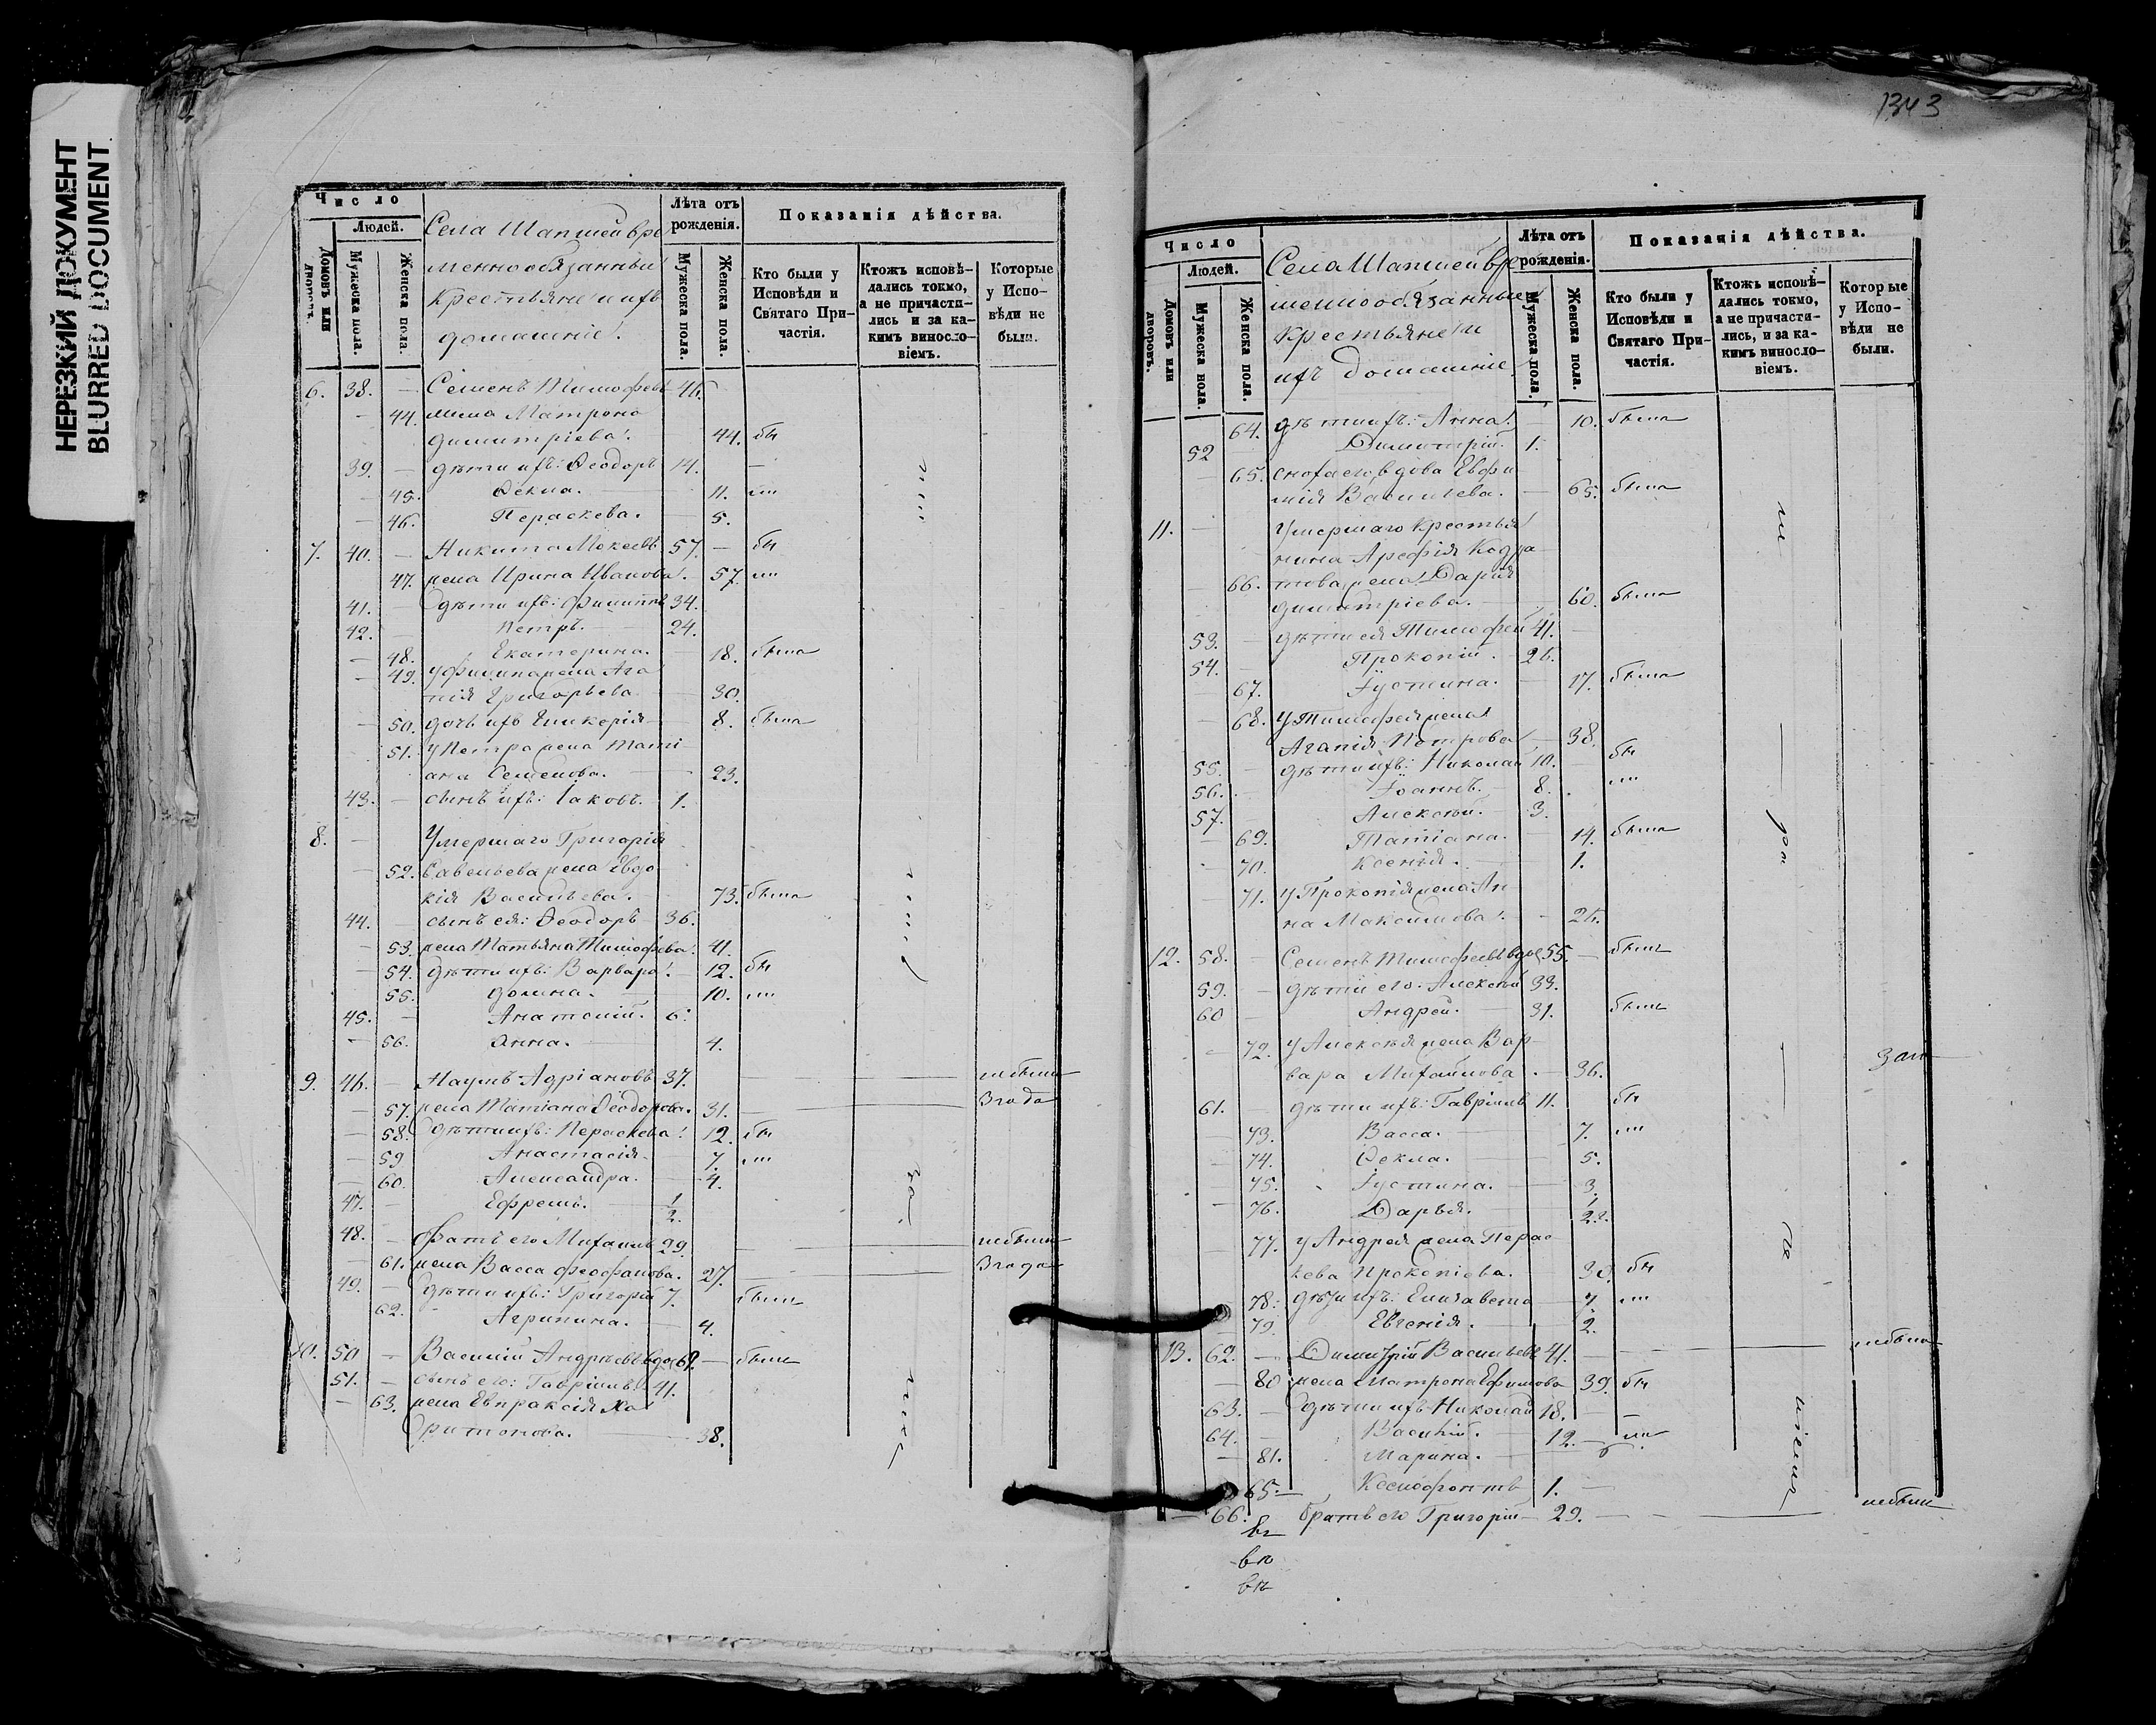 НЕРЕЗКИЙ ДОКУМЕНТ
BLURRED DOCUMENT
Число
Людей.
Домовъ или дворовъ.
Мужеска пола.
Женска пола.
Села Шапшей вре
меннообязанныи
крестьяне и ихъ
домашніе.
Лѣта отъ рожденія.
Мужеска пола.
Женска пола.
Показанія дѣйства.
Кто были у Исповѣди и Святаго Причастія.
Ктожъ исповѣдались токмо, а не причастились и за какимъ винословіемъ.
Которые у Исповѣди не были.
6. 38. — Семенъ Тимофеевъ 46.
44. жена Матрона
Димитріева. 44. бы
39. — дѣти ихъ: Ѳеодоръ 14. —
45. Ѳекла. 11. ли
46. Параскева. 5.
7. 40. — Никита Мокеевъ 57. — бы
47. жена Ирина Иванова. 57. ли
41. — дѣти ихъ: Филиппъ 34.
42. Петръ. 24.
48. Екатерина. 18. была
49. у Филиппа жена Ага
пія Григорьева 30.
50. дочь ихъ Гликерія 8. была
51. у Петра жена Таті
ана Семенова. 23.
43. — сынъ ихъ: Іаковъ. 1.
8. — Умершаго Григорія
52. Савельева жена Евдо
кія Васильева. 73. была
44. — сынъ ея: Ѳеодоръ 36.
53. жена Татьяна Тимофеева. 41.
54. дѣти ихъ: Варвара. 12. бы
55. Домна. 10. ли
45. — Анатолій. 6.
56. Анна. 4.
9. 46. — Наумъ Адріановъ 37. — небыли
57. жена Татіана Ѳеодорова. 31. — 3 года
58. Дѣти ихъ: Параскева. 12. бы
59 Анастасія. 7. ли
60. Александра. 4.
47. — Ефремъ. 1/2.
48. — братъ его Михаилъ 29. — небыли
61. жена Васса Феофанова. 27. — 3 года
49. — Дѣти ихъ: Григорій 7. были
62. Агрипина. 4.
10. 50 — Василій Андреевъ вдов. 69. — былъ
51. — сынъ его: Гавріилъ. 41.
63. жена Евпраксія Ха
ритонова. 38.
1343
Число
Людей.
Домовъ или дворовъ.
Мужеска пола.
Женска пола.
Села Шапшей вре
меннообязанные
крестьяне и
ихъ домашніе
Лѣта отъ рожденія.
Мужеска пола.
Женска пола.
Показанія дѣйства.
Кто были у Исповѣди и Святаго Причастія.
Ктожъ исповѣдались токмо, а не причастились, и за какимъ винословіемъ.
Которые у Исповѣди не были.
64. дѣти ихъ: Анна. 10. была
52 Димитрій. 1.
65. сноха его, вдова Евфи
мія Васильева. — 65. была
11. — Умершаго крестья
нина Арефія Кодра
66. това жена Дарія
Димитріева. 60. была
53. — дѣти ея Тимофей 41.
54. Прокопій. — 26.
67. Іустина. 17. была
68. у Тимофея жена
Агапія Петрова — 38.
55. — дѣти ихъ: Николай 10. бы
56. Іоаннъ. 8. ли
57. Алексѣй. 3.
69. Татіана. 14. была
70. Ксенія. 1.
71. у Прокопія жена Ан
на Максимова. — 26.
12. 58. — Семенъ Тимофеевъ вдов. 55. — былъ
59. — дѣти его: Алексѣй 33.
60 — Андрей. 31. былъ
72. у Алексѣя жена Вар
вара Михайлова. — 36.
61. — дѣти ихъ: Гавріилъ 11. бы
73. Васса. 7. ли
74. Ѳекла. 5.
75. Іустина. 3.
76. Дарья. 1/2.
77. у Андрея жена Парас
кева Прокопіева. 30. бы
78. дѣти ихъ: Елизавета 7. ли
79. Евгенія. 2.
13. 62. — Димитрій Васильевъ 41. — небылъ
80 жена Матрона Ефимова 39. бы
63. — Дѣти ихъ Николай 18. —
64. — Василій. 12. — ли
81. Марина.
65. — Ксенофонтъ 1. —
66. братъ его Григорій — 29. — небылъ